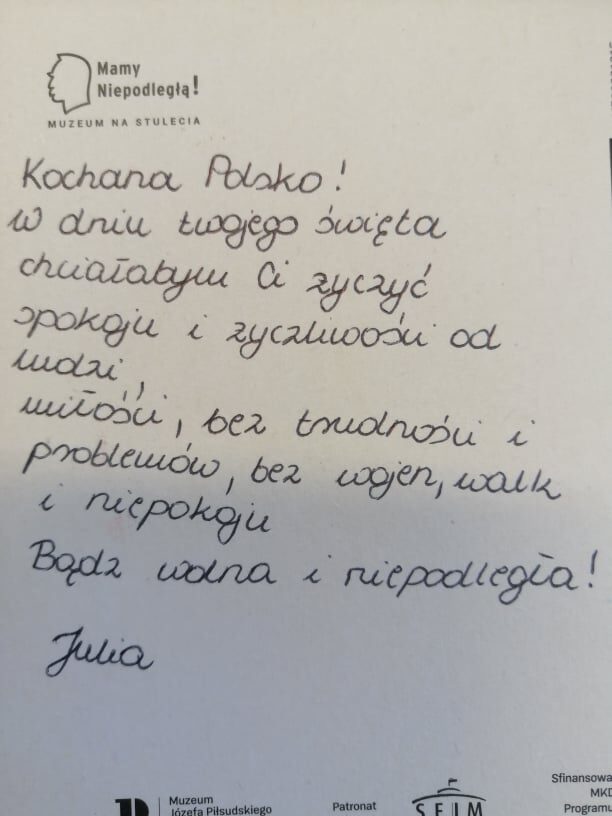 Mamy
Niepodległą!
MUZEUM NA STULECIA
Kochana Polsko!
W dniu twojego święta
chciałabym Ci życzyć
spokoju i życzliwości od
ludzi,
miłości, bez trudności i
problemów, bez wojen, walk
i niepokoju
Bądz wolna i niepodległa!
Julia
Muzeum
Józefa Piłsudskiego
Patronat
SEJM
Sfinansowa
MKD
Programu